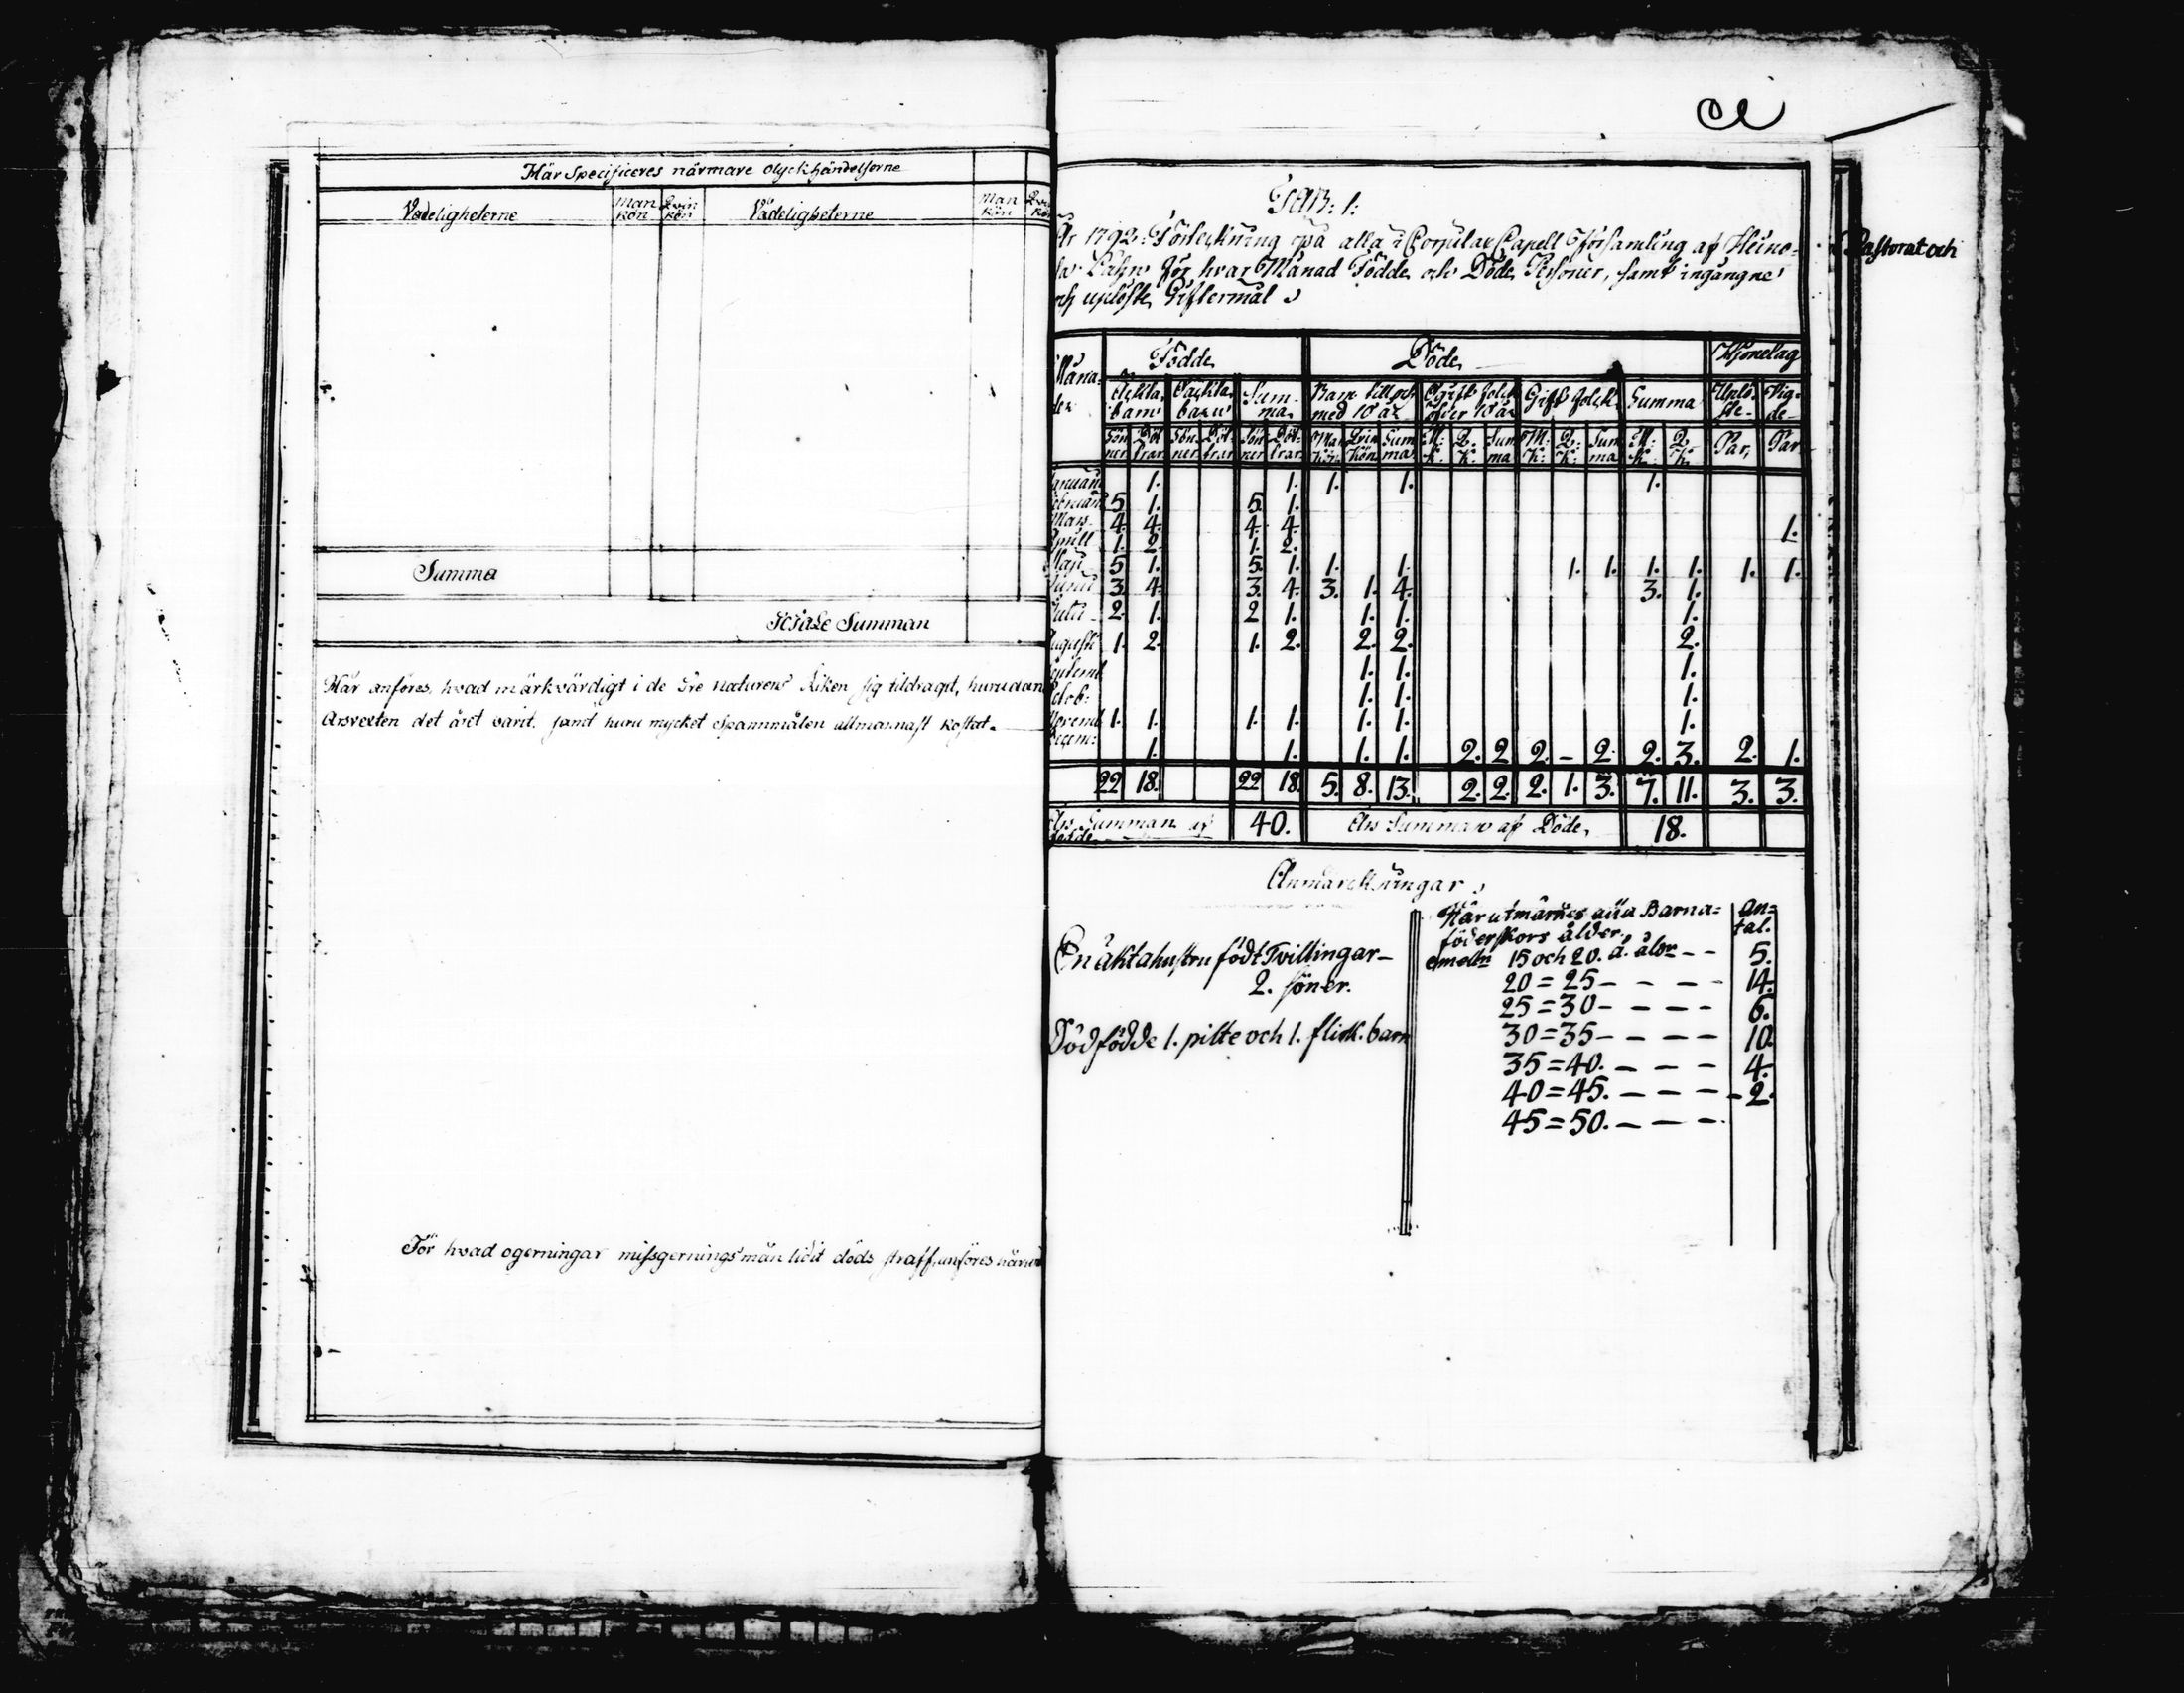 Här Specificeres närmare olyckhändelserne
Vådeligheterne Man kön Qvin kön Vådeligheterne Man kön
Summa
Hela Summan
Här anföres, hvad märkvärdigt i de 3re naturens Riken sig tildragit, hurudan
Årsvexten det året varit, samt huru mycket Spannmålen allmännast kostat.
För hvad ogerningar missgerningsmän lidit döds straff, anföres
TAB: 1:
År 1792. Förteckning öpå alla i Corpulax Capell Församling af
Lähn för hvar Månad Födde och Döde Personer, samt ingångne
och uplöste Giftermål
Pastorat och
Födde Döde Hjonelag
Måna- Äckta Oäckta Sum- Barn till och Ogift folck Gift folck Summa Uplö- Vig-
der barn barn ma med 10 år öfver 10 år ste de
Sön Döt Sön Döt Sön Döt Man Qvin Sum M: Q. Sum M: Q: Sum M: Q. Par, Par
ner trar ner trar ner trar kön kön ma K. K. ma K: K: ma K. K.
Januari 1. 1. 1. 1. 1.
Februari 5 1. 5. 1.
Mars 4. 4. 4. 4. 1.
Aprill 1. 2. 1. 2.
Maji 5 1. 5. 1. 1. 1. 1. 1. 1. 1. 1. 1.
Junii 3. 4. 3. 4. 3. 1. 4. 3. 1.
Julii 2. 1. 2 1. 1. 1. 1.
Augusti 1. 2. 1. 2. 2. 2. 2.
Septemb 1. 1. 1.
Octob: 1. 1. 1.
Novemb 1. 1. 1. 1. 1. 1. 1.
Decem: 1. 1. 1. 1. 2. 2 2. - 2. 2. 3. 2. 1.
22 18. 22 18 5. 8. 13. 2. 2. 2. 1. 3. 7. 11. 3. 3.
Års Summan af födde 40. Års Summan af Döde, 18.
Anmärckningar
En äkta hustru födt Tvillingar -
2. söner.
Dödfödde 1. pilte och 1. flick. barn
Här utmärkes alla Barna= an=
föderskors ålder. tal.
emelln 15 och 20. å. åldr - - 5.
20 = 25 - - - - 14.
25 = 30 - - - - 6.
30 = 35 - - - - 10.
35 = 40. - - - 4.
40 = 45. - - - - 2.
45 = 50. - - -